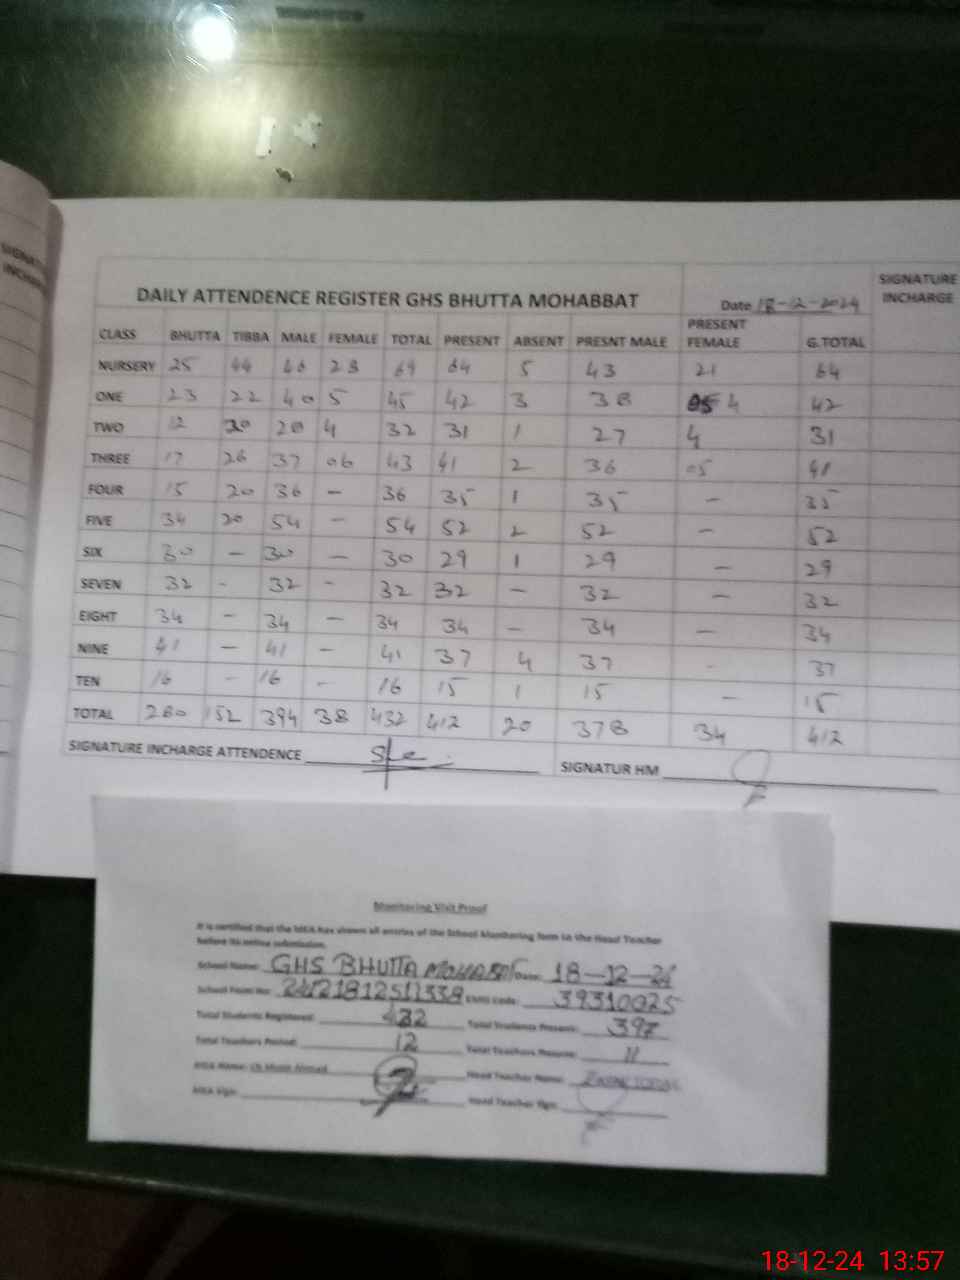 SIGNATURE
INCHARGE
DAILY ATTENDENCE REGISTER GHS BHUTTA MOHABBAT Date 18-12-2024
CLASS BHUTTA TIBBA MALE FEMALE TOTAL PRESENT ABSENT PRESNT MALE PRESENT FEMALE G.TOTAL
NURSERY 25 44 46 23 69 64 5 43 21 64
ONE 23 22 40 5 45 42 3 38 4 42
TWO 12 20 28 4 32 31 1 27 4 31
THREE 17 26 37 06 43 41 2 36 05 41
FOUR 15 20 36 - 36 35 1 35 - 35
FIVE 34 20 54 - 54 52 2 52 - 52
SIX 30 - 30 - 30 29 1 29 - 29
SEVEN 32 - 32 - 32 32 - 32 - 32
EIGHT 34 - 34 - 34 34 - 34 - 34
NINE 41 - 41 - 41 37 4 37 - 37
TEN 16 - 16 - 16 15 1 15 - 15
TOTAL 280 152 394 38 432 412 20 378 34 412
SIGNATURE INCHARGE ATTENDENCE SIGNATUR HM
Monitoring Visit Proof
It is certified that the MEA has shown all entries of the School Monitoring form to the Head Teacher
before its online submission.
School Name: GHS BHUTTA MOHABBAT Date: 18-12-24
School Form No: EMIS Code: 39310025
Total Students Registered: 432 Total Students Present: 397
Total Teachers Posted: 12 Total Teachers Present: 11
MEA Name: Head Teacher Name:
MEA Sign: Head Teacher Sign:
18-12-24 13:57